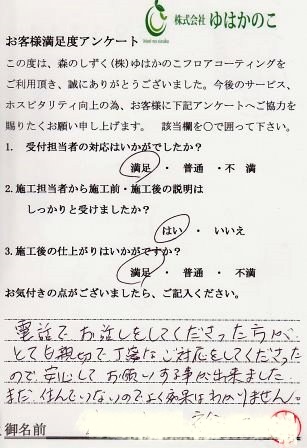 株式会社 ゆはかのこ
お客様満足度アンケート
この度は、森のしずく(株)ゆはかのこフロアコーティングを
ご利用頂き、誠にありがとうございました。今後のサービス、
ホスピタリティ向上の為、お客様に下記アンケートへご協力を
賜りたくお願い申し上げます。 該当欄を〇で囲って下さい。
1. 受付担当者の対応はいかがでしたか?
満足 ・ 普通 ・不 満
2.施工担当者から施工前・施工後の説明は
しっかりと受けましたか?
はい ・ いいえ
3.施工後の仕上がりはいかがですか?
満足 ・ 普通 ・ 不満
お気付きの点がございましたら、ご記入ください。
電話でお話しをしてくださった方が、
とても親切で丁寧なご対応をしてくださった
ので安心してお願いする事が出来ました
まだ、住んでいないのでよく効果はわかりません。
御名前